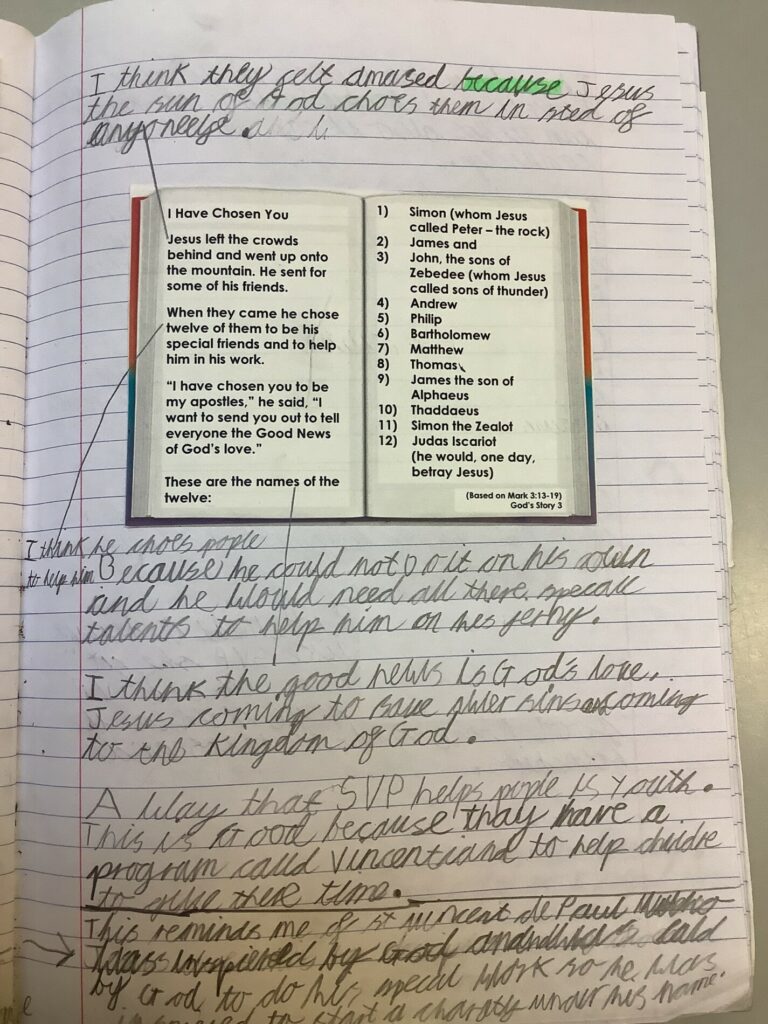 I think they felt amased because Jesus
the sun of God choes them in sted of
anyoneelse.
I Have Chosen You
Jesus left the crowds
behind and went up onto
the mountain. He sent for
some of his friends.
When they came he chose
twelve of them to be his
special friends and to help
him in his work.
“I have chosen you to be
my apostles,” he said, “I
want to send you out to tell
everyone the Good News
of God’s love.”
These are the names of the
twelve:
1) Simon (whom Jesus
called Peter – the rock)
2) James and
3) John, the sons of
Zebedee (whom Jesus
called sons of thunder)
4) Andrew
5) Philip
6) Bartholomew
7) Matthew
8) Thomas
9) James the son of
Alphaeus
10) Thaddaeus
11) Simon the Zealot
12) Judas Iscariot
(he would, one day,
betray Jesus)
(Based on Mark 3:13-19)
God’s Story 3
I think he choes pople
to help him Because he could not Do it on his
and he Would need all there specall
talents to help him on his jerny.
I think the good news is God's love.
Jesus coming to save sins coming
to the Kingdom of God.
A Way that SVP helps pople is Youth.
This is Good because thay have a
program calld to help childre
to give there time.
This reminds me of st vincent de Paul
Was inspiered by God calld
by God to do his specal Work so he Was
to start a charaty under his name.